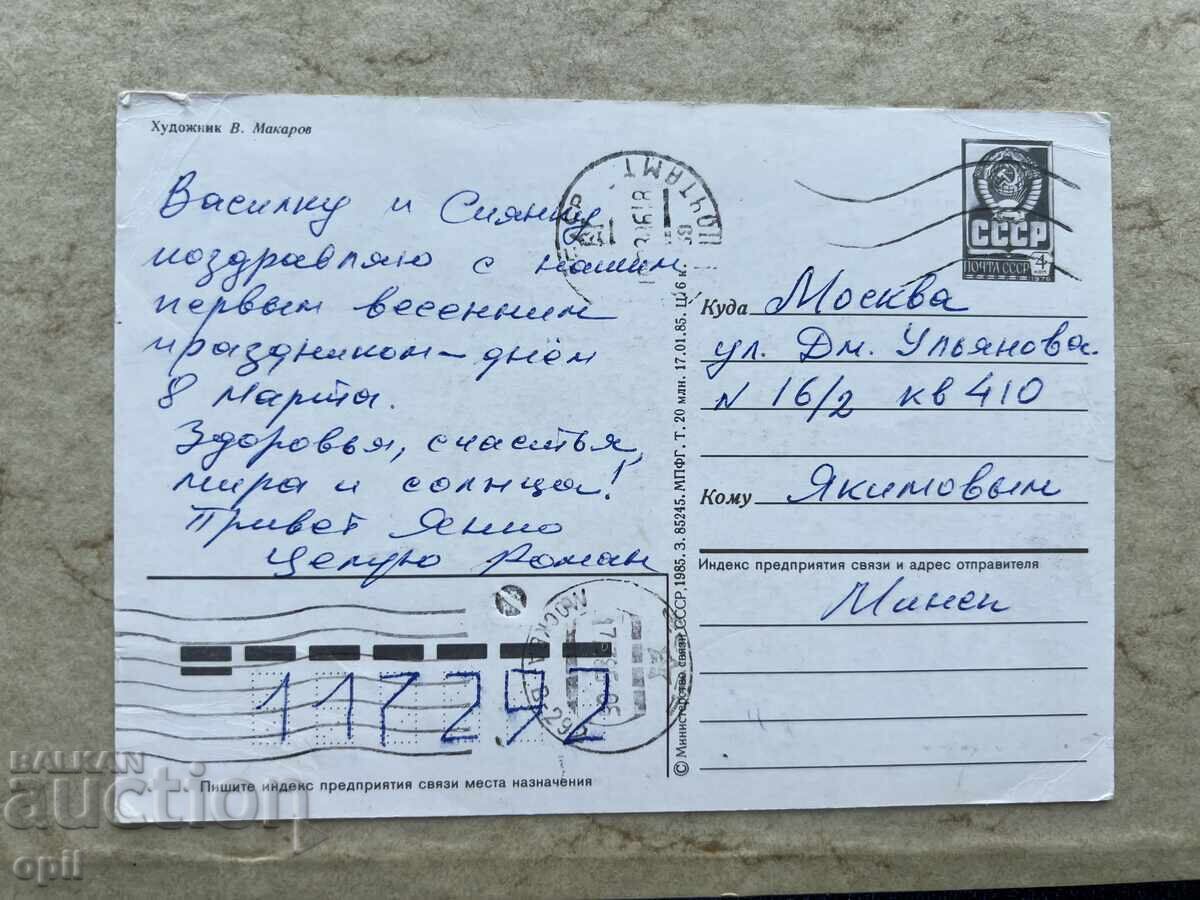 Художник В. Макаров
Василку и Сиянку
поздравляю с нашим
первым весенним
праздником - днём
8 Марта.
Здоровья, счастья,
мира и солнца!
Привет Янию
Целую Роман
ПОЧТАМТ
СССР
ПОЧТА СССР
4
1976
Куда Москва
ул. Дм. Ульянова
N 16/2 кв 410
Кому Якимовым
Индекс предприятия связи и адрес отправителя
Минск
МОСКВА
117292
Пишите индекс предприятия связи места назначения
© Министерство связи СССР, 1985. З. 85245. МПФГ. Т. 20 млн. 17.01.85. Ц. 6 к.
BALKAN
auction
opil